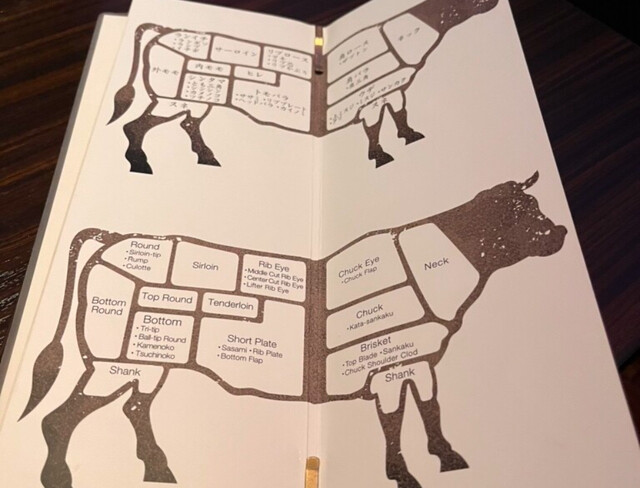 ランイチ
サーロイン
リブロース
肩ロース
ネック
外モモ
内モモ
ヒレ
シンタマ
トモバラ
肩バラ
スネ
スネ
Round
•Sirloin-tip
•Rump
•Culotte
Sirloin
Rib Eye
•Middle Cut Rib Eye
•Center Cut Rib Eye
•Lifter Rib Eye
Chuck Eye
•Chuck Flap
Neck
Bottom
Round
Top Round
Tenderloin
Chuck
•Kata-sankaku
Bottom
•Tri-tip
•Ball-tip Round
•Kamenoko
•Tsuchinoko
Short Plate
•Sasami •Rib Plate
•Bottom Flap
Brisket
•Top Blade •Sankaku
•Chuck Shoulder Clod
Shank
Shank